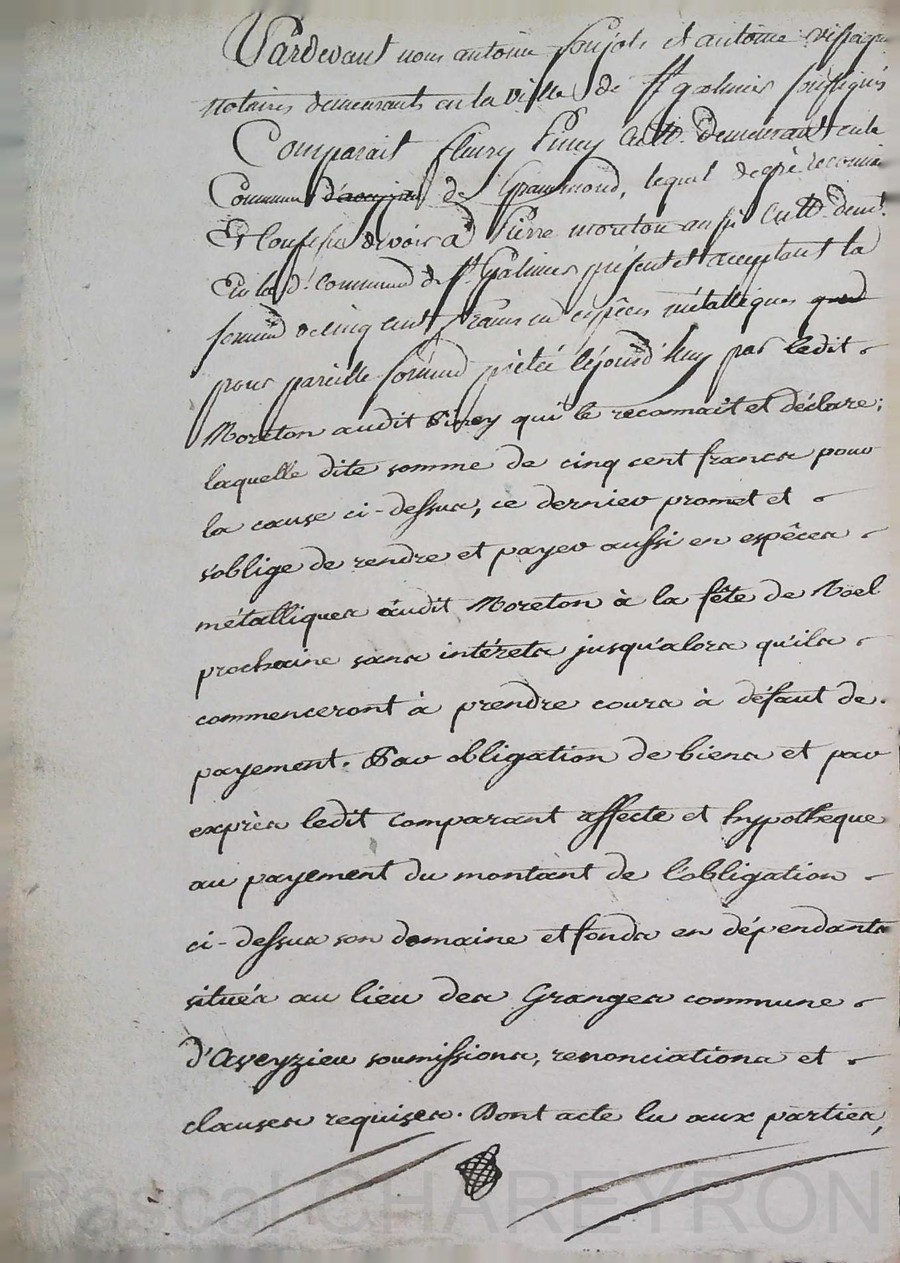 Pardevant nous antoine Soujols et antoine
notaires demeurants en la ville de St galmier soussignés
Comparait fleury Piney cult. demeurant en la
Commune d'aveyzieu de Grammond, lequel de gré reconnait
Et Confesse devoir a Pierre moreton aussi Cult. demt.
En lad. commune de St. Galmier présent et acceptant la
somme de cinq cent francs en espêces métalliques que
pour pareille somme prêtée cejourd'huy par ledit
Moreton audit Piney qui le reconnait et déclare;
laquelle dite somme de cinq cent francs pour
la cause ci-dessus, ce dernier promet et
s'oblige de rendre et payer aussi en espêces
métalliques audit Moreton à la fête de Noel
prochaine sans intérets jusqu'alors qu'ils
commenceront à prendre cours à défaut de
payement. Par obligation de biens et par
exprès ledit comparant affecte et hypothèque
au payement du montant de l'obligation
ci-dessus son domaine et fonds en dépendants
situés au lieu des Granges commune
d'Aveyzieu soumissions, renonciations et
clauses requises. Dont acte lu aux parties,
Pascal CHAREYRON